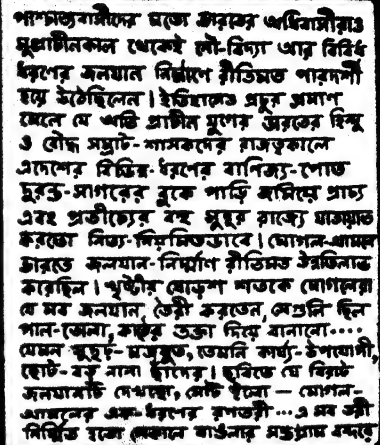 পাশ্চাত্যবাসীদের মতো ভারতের অধিবাসীরাও
সুপ্রাচীনকাল থেকেই নৌ-বিদ্যা আর বিবিধ
ধরণের জলযান নির্ম্মাণে রীতিমত পারদর্শী
হয়ে উঠেছিলেন। ইতিহাসেও প্রচুর প্রমাণ
মেলে যে অতি প্রাচীন যুগের ভারতের হিন্দু
ও বৌদ্ধ সম্রাট-শাসকদের রাজত্বকালে
এদেশের বিভিন্ন-ধরণের বাণিজ্য-পোত
দুরন্ত-সাগরের বুকে পাড়ি জমিয়ে প্রাচ্য
এবং প্রতীচ্যের বহু সুদূর রাজ্যে যাতায়াত
করতো নিত্য-নিয়মিতভাবে। মোগল-আমলে
ভারতে জলযান-নির্ম্মাণ রীতিমত উন্নতিলাভ
করেছিল। খৃষ্টীয় ষোড়শ শতকে মোগলেরা
যে সব জলযান তৈরী করতেন, সেগুলি ছিল
পাল-তোলা, কাঠের তক্তা দিয়ে বানানো....
যেমন সুদৃঢ়-মজবুত, তেমনি কার্য্য-উপযোগী,
ছোট-বড় নানা ছাঁদের। ছবিতে যে বিরাট
জলযানটি দেখছো, সেটি হলো — মোগল-
আমলের এক-ধরণের রণতরী...এ সব তরী
নির্ম্মিত হতো সেকালে বাঙলার সপ্তগ্রাম বন্দরে